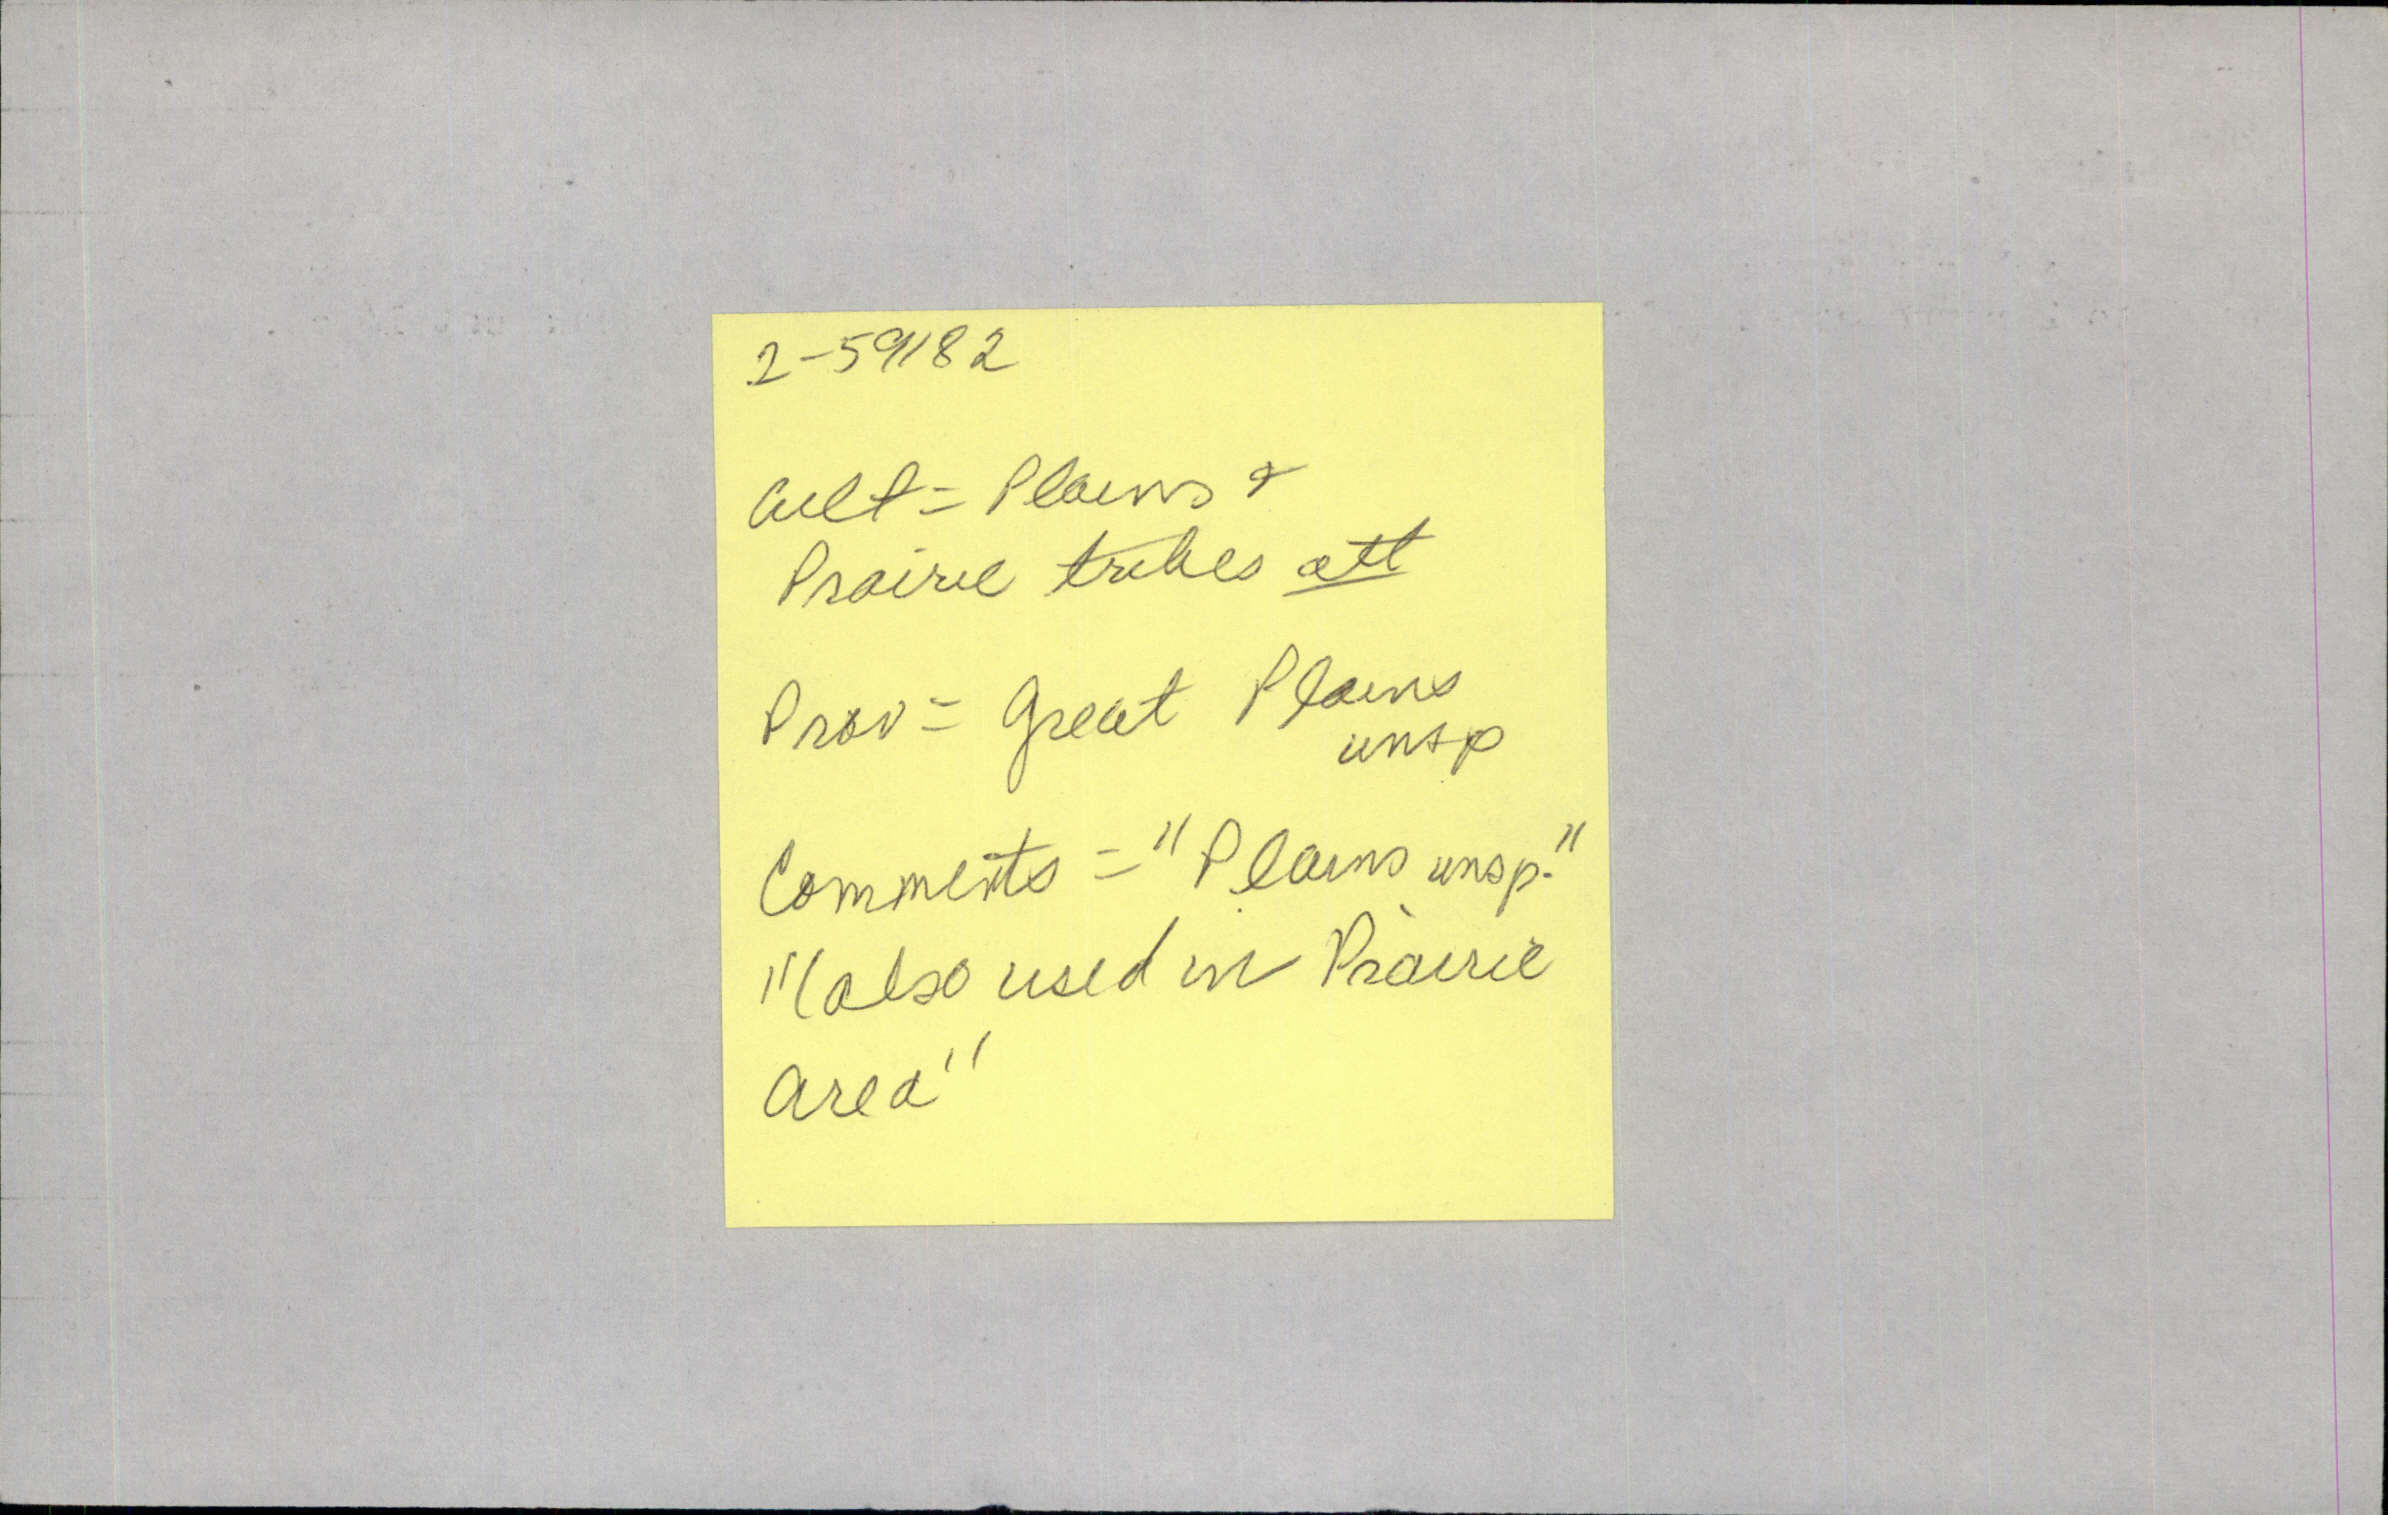 2-59182
Cult = Plains &
Prairie tribes att
Prov = Great Plains
unsp
Comments = "Plains unsp."
"(also used in Prairie
area"